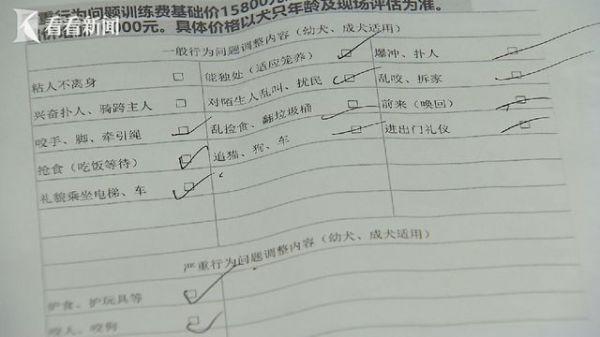 看看新闻
行为问题训练费基础价15800元
000元。具体价格以犬只年龄及现场评估为准。
一般行为问题调整内容（幼犬、成犬适用）
粘人不离身 □ 能独处（适应笼养） □ 爆冲、扑人 □
兴奋扑人、骑跨主人 □ 对陌生人乱叫、扰民 □ 乱咬、拆家 □
咬手、脚、牵引绳 □ 乱捡食、翻垃圾桶 □ 前来（唤回） □
抢食（吃饭等待） □ 追猫、狗、车 □ 进出门礼仪 □
礼貌乘坐电梯、车 □
严重行为问题调整内容（幼犬、成犬适用）
护食、护玩具等 □
咬人、咬狗 □